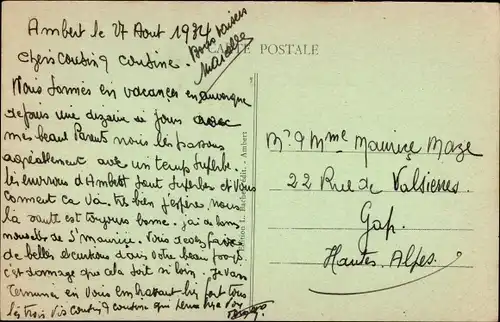 Ambert le 27 Aout 1934
Bons baisers
Marcelle
CARTE POSTALE
Chers Cousin & Cousine.
Nous sommes en vacances en auvergne
depuis une dizaine de jours avec
mes beaux Parents nous les passons
agréablement avec un temps Superbe.
les environs d'Ambert sont Superbes et Vous
Comment ca Va. tres bien j'espère, nous
la santé est toujours bonne. j'ai de bonnes
nouvelles de St Maurice. Vous devez faire
de belles excursions dans votre beau
c'est dommage que cela soit si loin. Je vais
Terminer en Vous embrassant bien fort tous
les trois Vos Cousin & Cousine qui
Edition L. Ambert
Mr & Mme Maurice Maze
22 Rue de
Gap.
Hautes. Alpes.